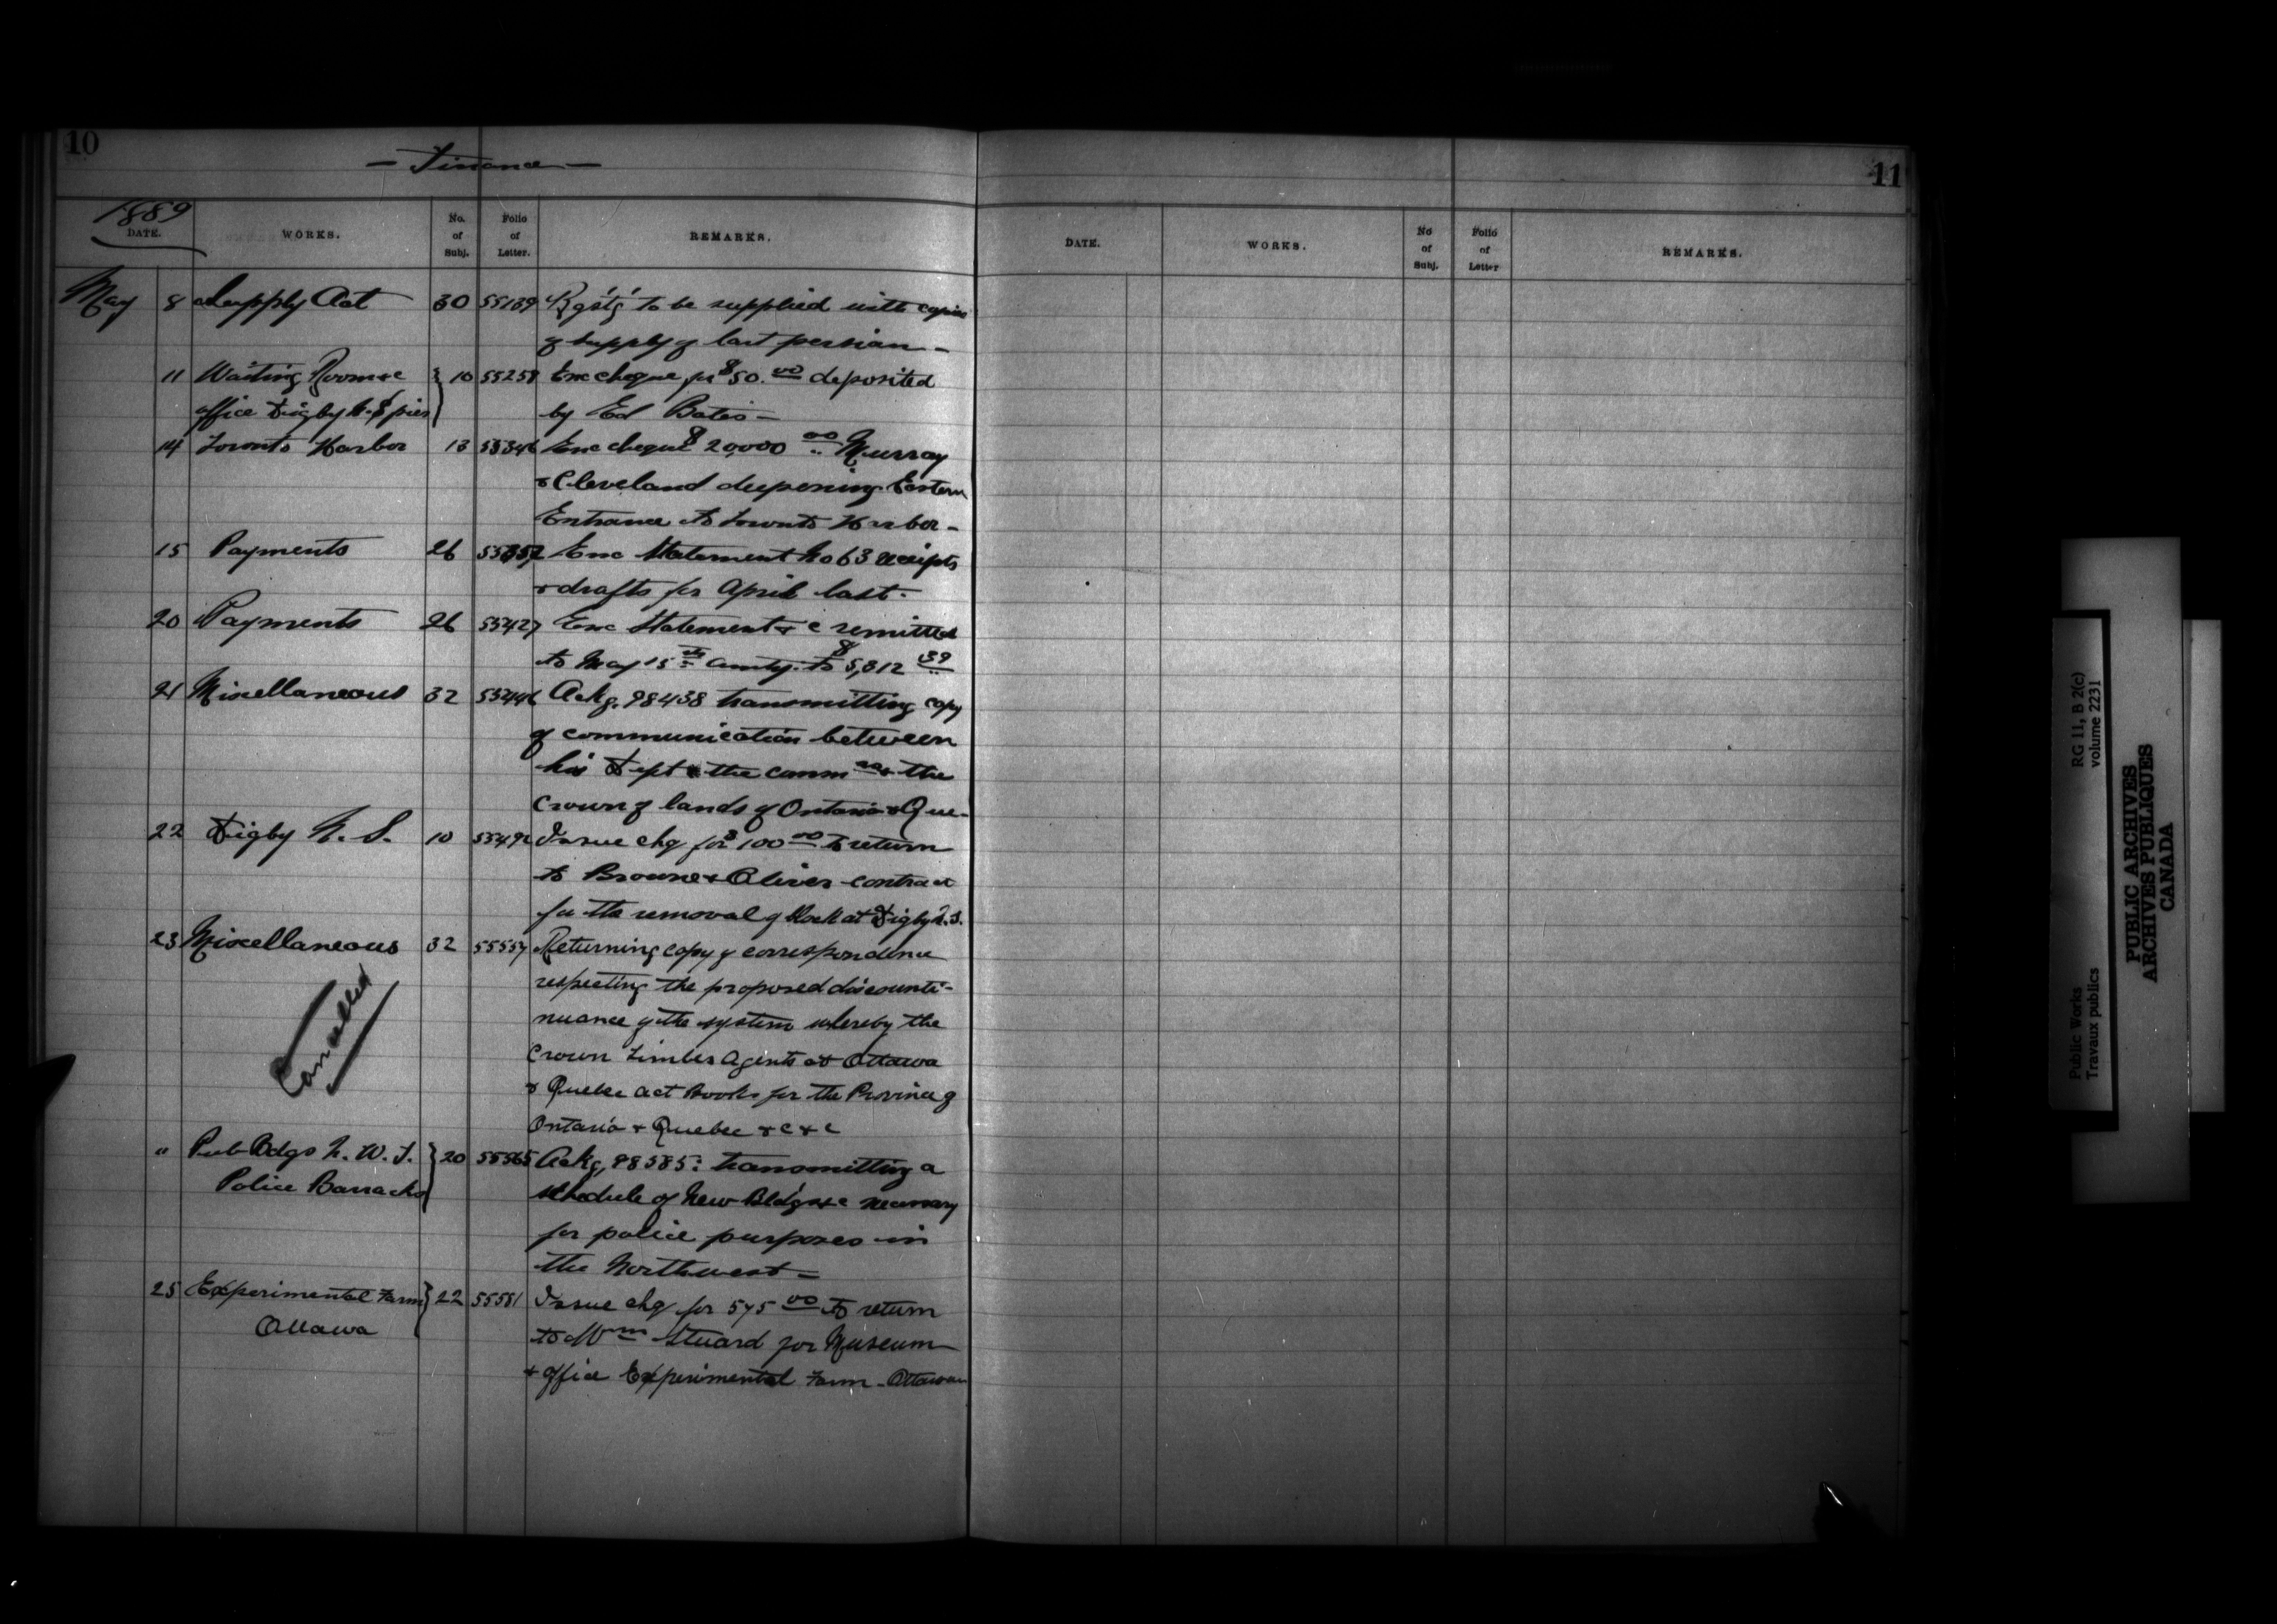 10
— Finance —
1889
DATE. WORKS. No. of Subj. Folio of Letter. REMARKS.
May 8 Supply Act 30 55139 Rqstg to be supplied with copies
of supply of last
11 Waiting Room &c } 10 55258 Enc cheque for $50.00 deposited
office Digby N.S pier by Ed Bates —
14 Toronto Harbor 13 55346 Enc cheque $20,000 00 Murray
& Cleveland deepening Eastern
Entrance to Toronto Harbor —
15 Payments 26 Enc Statement No 63 receipts
& drafts for April last -
20 Payments 26 55427 Enc Statement & c remitted
to May 15th amtg. to $5,812 39
21 Miscellaneous 32 55446 Ackg. 98438 transmitting copy
of communication between
his Dept & the the
Crown of lands of Ontario & Que-
22 Digby N. S. 10 55492 Issue chq for $100 00 to return
to Browne & Oliver contract
for the removal of block at Digby N.S.
23 Miscellaneous 32 55557 Returning copy of correspondence
respecting the proposed disconti-
nuance of the system whereby the
Cancelled
Crown Timber Agents at Ottawa
& Quebec act Books for the Province of
Ontario & Quebec & c & c
" Pub Bdgs N. W. T. } 20 55565 Ackg, 98585: transmitting a
Police Barracks schedule of New Bldgs &c necessary
for police purposes in
the Northwest —
25 Experimental Farm } 22 55581 Issue chq for 575 00 to return
Ottawa to Wm Stuard for Museum
& office Experimental Farm - Ottawa
11
DATE. WORKS. No of Subj. Folio of Letter REMARKS.
Public Works RG 11, B 2(c)
Travaux publics volume 2231
PUBLIC ARCHIVES
ARCHIVES PUBLIQUES
CANADA